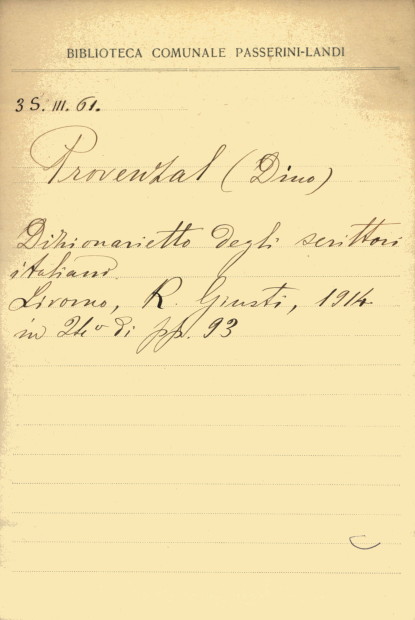 BIBLIOTECA COMUNALE PASSERINI-LANDI
3S. III. 61.
Provenzal (Dino)
Dizionarietto degli scrittori
italiani.
Livorno, R. Giusti, 1914
in 24º di pp. 93